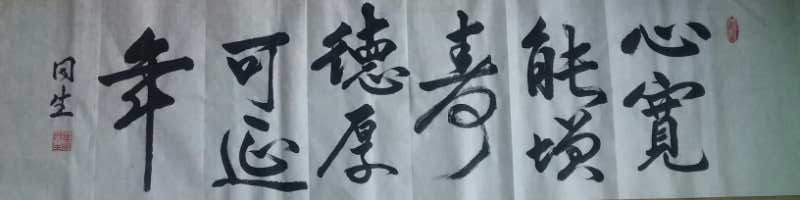 心寬
能增
壽
德厚
可延
年
同生